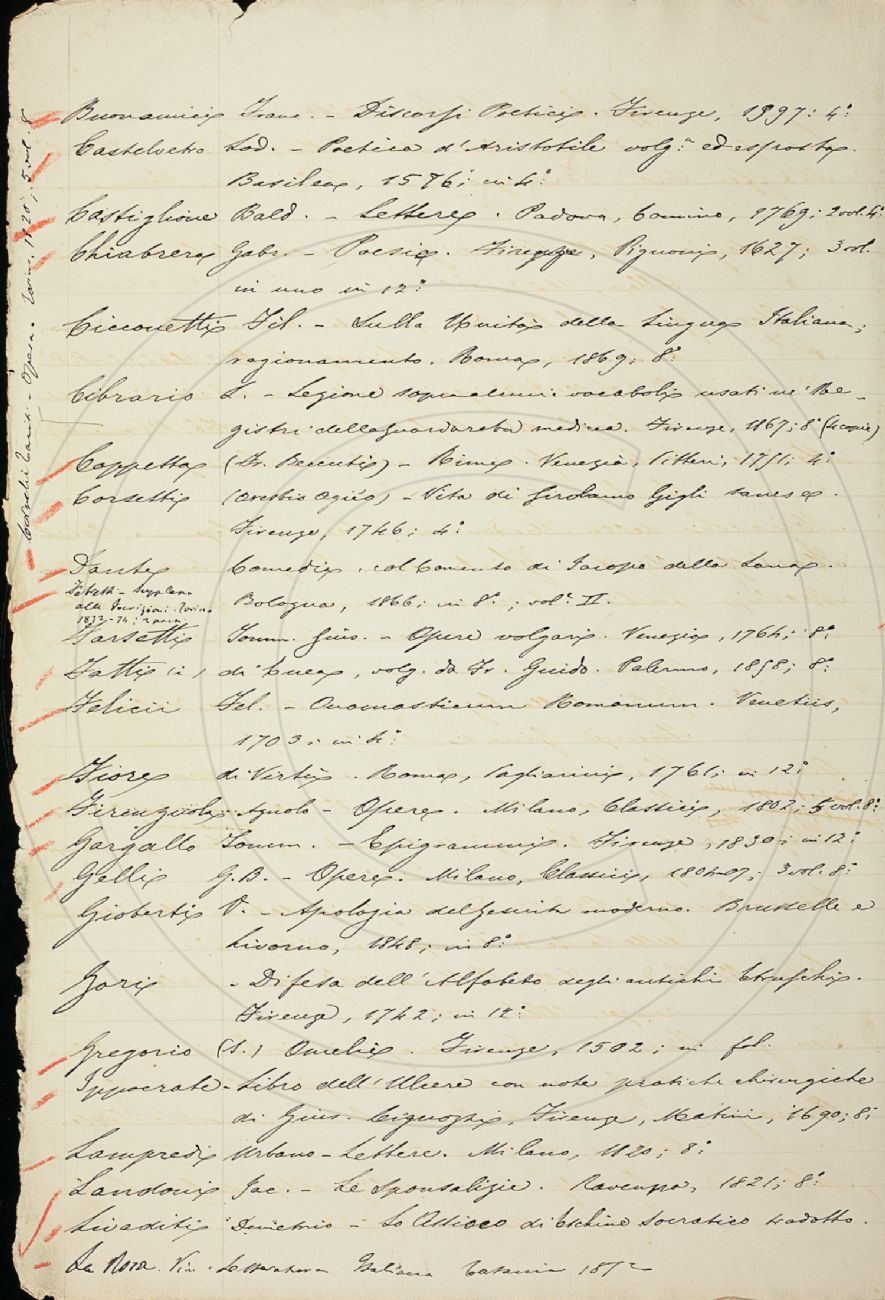 Buonamici Franc. - Discorsi Poetici. Firenze, 1597; 4.°
Castelvetro Lod. - Poetica d'Aristotile volg.ª ed esposta.
Basilea, 1576; in 4.°
Castiglione Bald. - Lettere. Padova, Comino, 1769; 2 vol. 4.°
Chiabrera Gabr. - Poesie. Firenze, Pignoni, 1627; 3 vol.
in uno in 12.°
Cicconetti Fil. - Sulla Unità della Lingua Italiana;
ragionamento. Roma, 1869; 8.°
Cibrario L. - Lezione sopra alcuni vocaboli usati ne' Re-
gistri della Guardaroba medicea. Firenze, 1867; 8.° (4 copie)
Coppetta (Fr. Beccuti) - Rime. Venezia, Pitteri, 1751; 4.°
Corsetti (Oresbio Agieo) - Vita di Girolamo Gigli sanese.
Firenze, 1746; 4.°
Dante Comedia, col Comento di Jacopo della Lana.
Bologna, 1866; in 8.°; vol. II.
Fabretti - Supplem.
alle Iscrizioni. Torino
1872-74;
Farsetti Tomm. Gius. - Opere volgari. Venezia, 1764; 8.°
Fatti (i) di Enea, volg. da Fr. Guido. Palermo, 1858; 8.°
Felicii Fel. - Onomasticum Romanum. Venetiis,
1703; in 4.°
Fiore di Virtù. Roma, Pagliarini, 1761; in 12.°
Firenzuola Agnolo - Opere. Milano, Classici, 1802; 5 vol. 8.°
Gargallo Tomm. - Epigrammi. Firenze, 1830; in 12.°
Gelli G.B. - Opere. Milano, Classici, 1804-07; 3 vol. 8.°
Gioberti V. - Apologia del Gesuita moderno. Brusselle e
Livorno, 1848; in 8.°
Gori - Difesa dell'Alfabeto degli antichi Etruschi.
Firenze, 1742; in 12.°
Gregorio (S.) Omelie. Firenze, 1502; in fol.
Ippocrate - Libro dell'Ulcere con note pratiche chirurgiche
di Gius. Cignozzi, Firenze, Matini, 1690; 8.°
Lampredi Urbano - Lettere. Milano, 1820; 8.°
Landoni Jac. - Le Sponsalizie. Ravenna, 1821; 8.°
Livaditi Demetrio - Lo Assioco di Eschine Socratico tradotto.
La Noza Vin. Letteratura Italiana Catania 1872